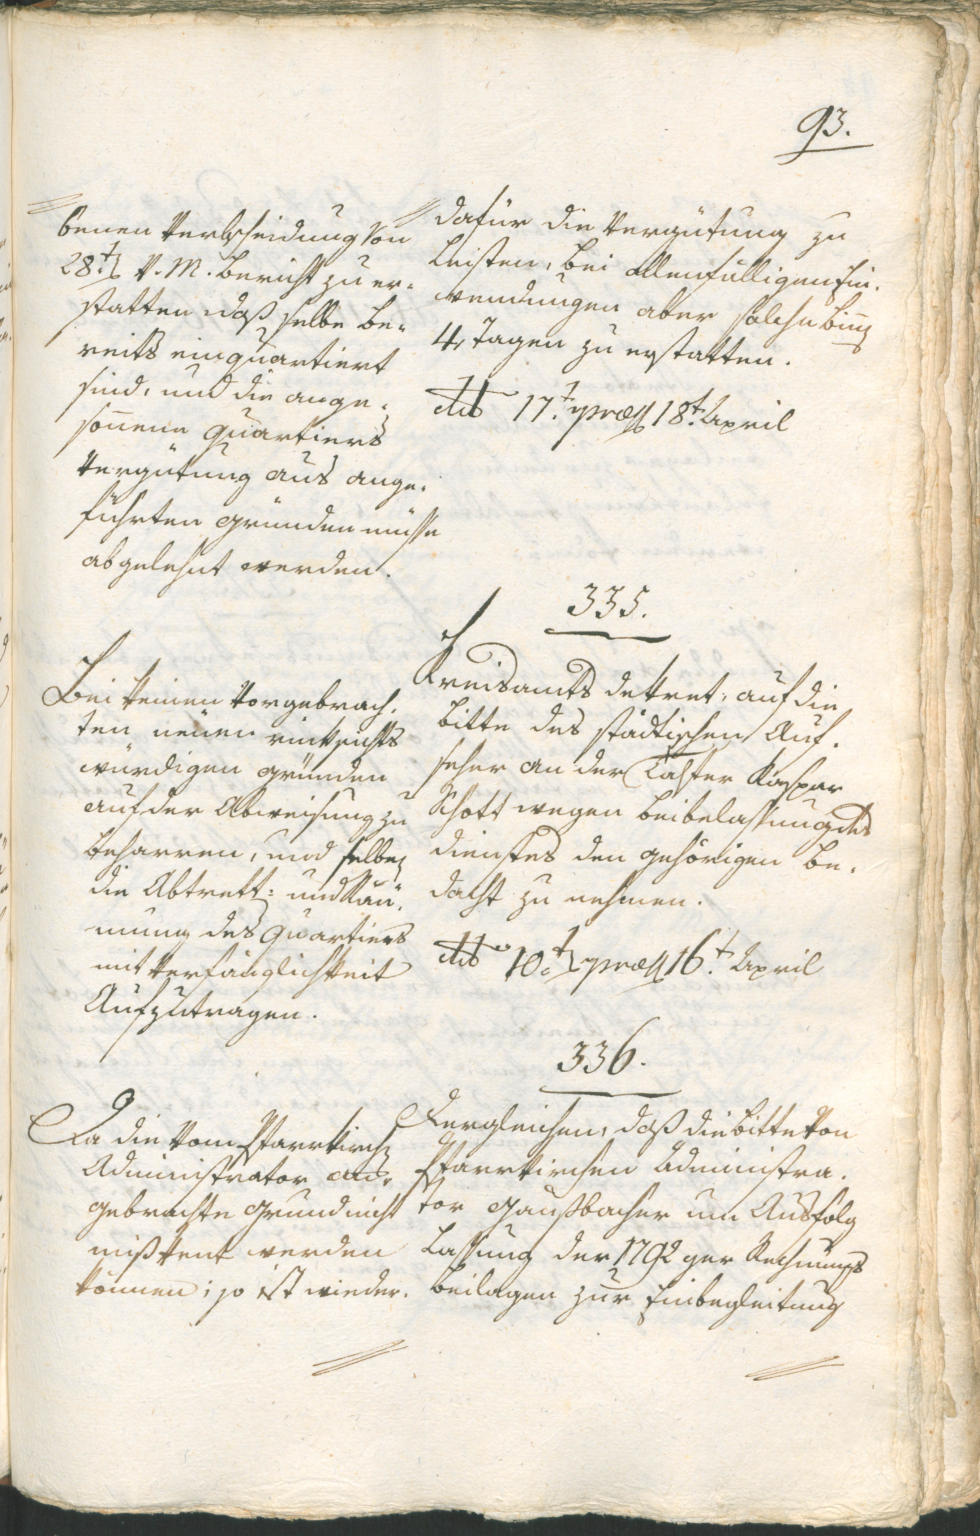 93.
benen Verbscheidung von
28.t. v. M. Bericht zu er-
statten daß selbe be-
reits einquartiert
sind, und die ange-
sonnene Quartiers
Vergütung aus ange-
führten Gründen müsse
abgelehnt werden.
dafür die Vergütung zu
leisten, bei allenfälligen Ein-
wendungen aber solche binn
4 Tagen zu erstatten.
dto 17.t praes 18.t April
335.
Bei keinen vorgebrach-
ten neuen rücksichts
würdigen Gründen
auf der Abweisung zu
beharren, und selben
die Abtrett: und Räu-
mung des Quartiers
mit Verfänglichkeit
Aufzutragen.
Kreisamts dekret, auf die
Bitte des städtischen Auf-
seher an der Kaspar
Schott wegen Beibelassung des
dienstes den gehörigen Be-
dacht zu nehmen.
dto 10.t praes 16.t April
336.
Da die vom Pfarrkirch
Administrator an-
gebrachte Grund nicht
mißkent werden
können; so ist wieder-
Dergleichen, daß die Bitte von
Pfarrkirchen Administra-
tor Gaußbacher um Ausfolg
Lassung der 1792 ger Rechnungs
Beilagen zur Einbegleitung